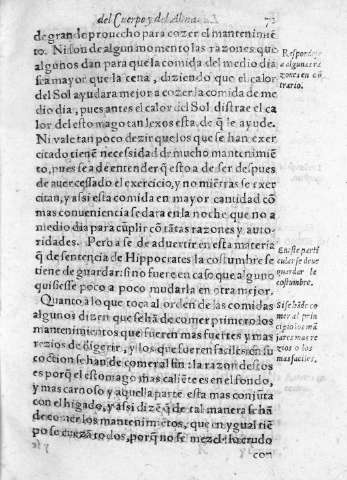 del Cuerpo y del Alma.
72
de gran de prouecho para cozer el mantenimie
to. Ni son de algun momento las razones que
algunos dan para que la comida del medio dia
sea mayor que la cena, diziendo que el calor
del Sol ayudara mejor a cozer la comida de me
dio dia, pues antes el calor del Sol distrae el ca
lor del estomago tan lexos esta, de q̃ le ayude.
Ni vale tan poco dezir que los que se han exer
citado tienẽ necessidad de mucho mantenimiẽ
to, pues se a de entender q̃ esto a de ser despues
de auer cessado el exercicio, y no miẽtras se exer
citan, y assi esta comida en mayor cantidad cõ
mas conueniencia se dara en la noche que no a
medio dia para cũplir cõ tãtas razones y auto-
ridades. Pero a se de aduertir en esta materia
q̃ de sentencia de Hippocrates la costumbre se
tiene de guardar: si no fuere en caso que alguno
quisiesse poco a poco mudarla en otra mejor.
Quanto a lo que toca al orden de las comidas
algunos dizen que se hã de comer primero los
mantenimientos que fueren mas fuertes y mas
rezios de digerir, y los que fueren faciles en su
coction se han de comer al fin: la razon destos
es porq̃ el estomago mas caliẽte es en el fondo,
y mas carnoso y aquella parte esta mas conjũta
con el higado, y assi dizẽ q̃ de tal manera se hã
de comer los mantenimiẽtos, que en ygual tiẽ
po se cuezã todos, porq̃ no se mezcle lo crudo
con
Respondese
a algunas ra
zones en cõ
trario.
En este parti
cular se deue
guardar la
costumbre.
Si se hã de co
mer al prin
cipio los mã
jares mas re
zios o los
mas faciles.